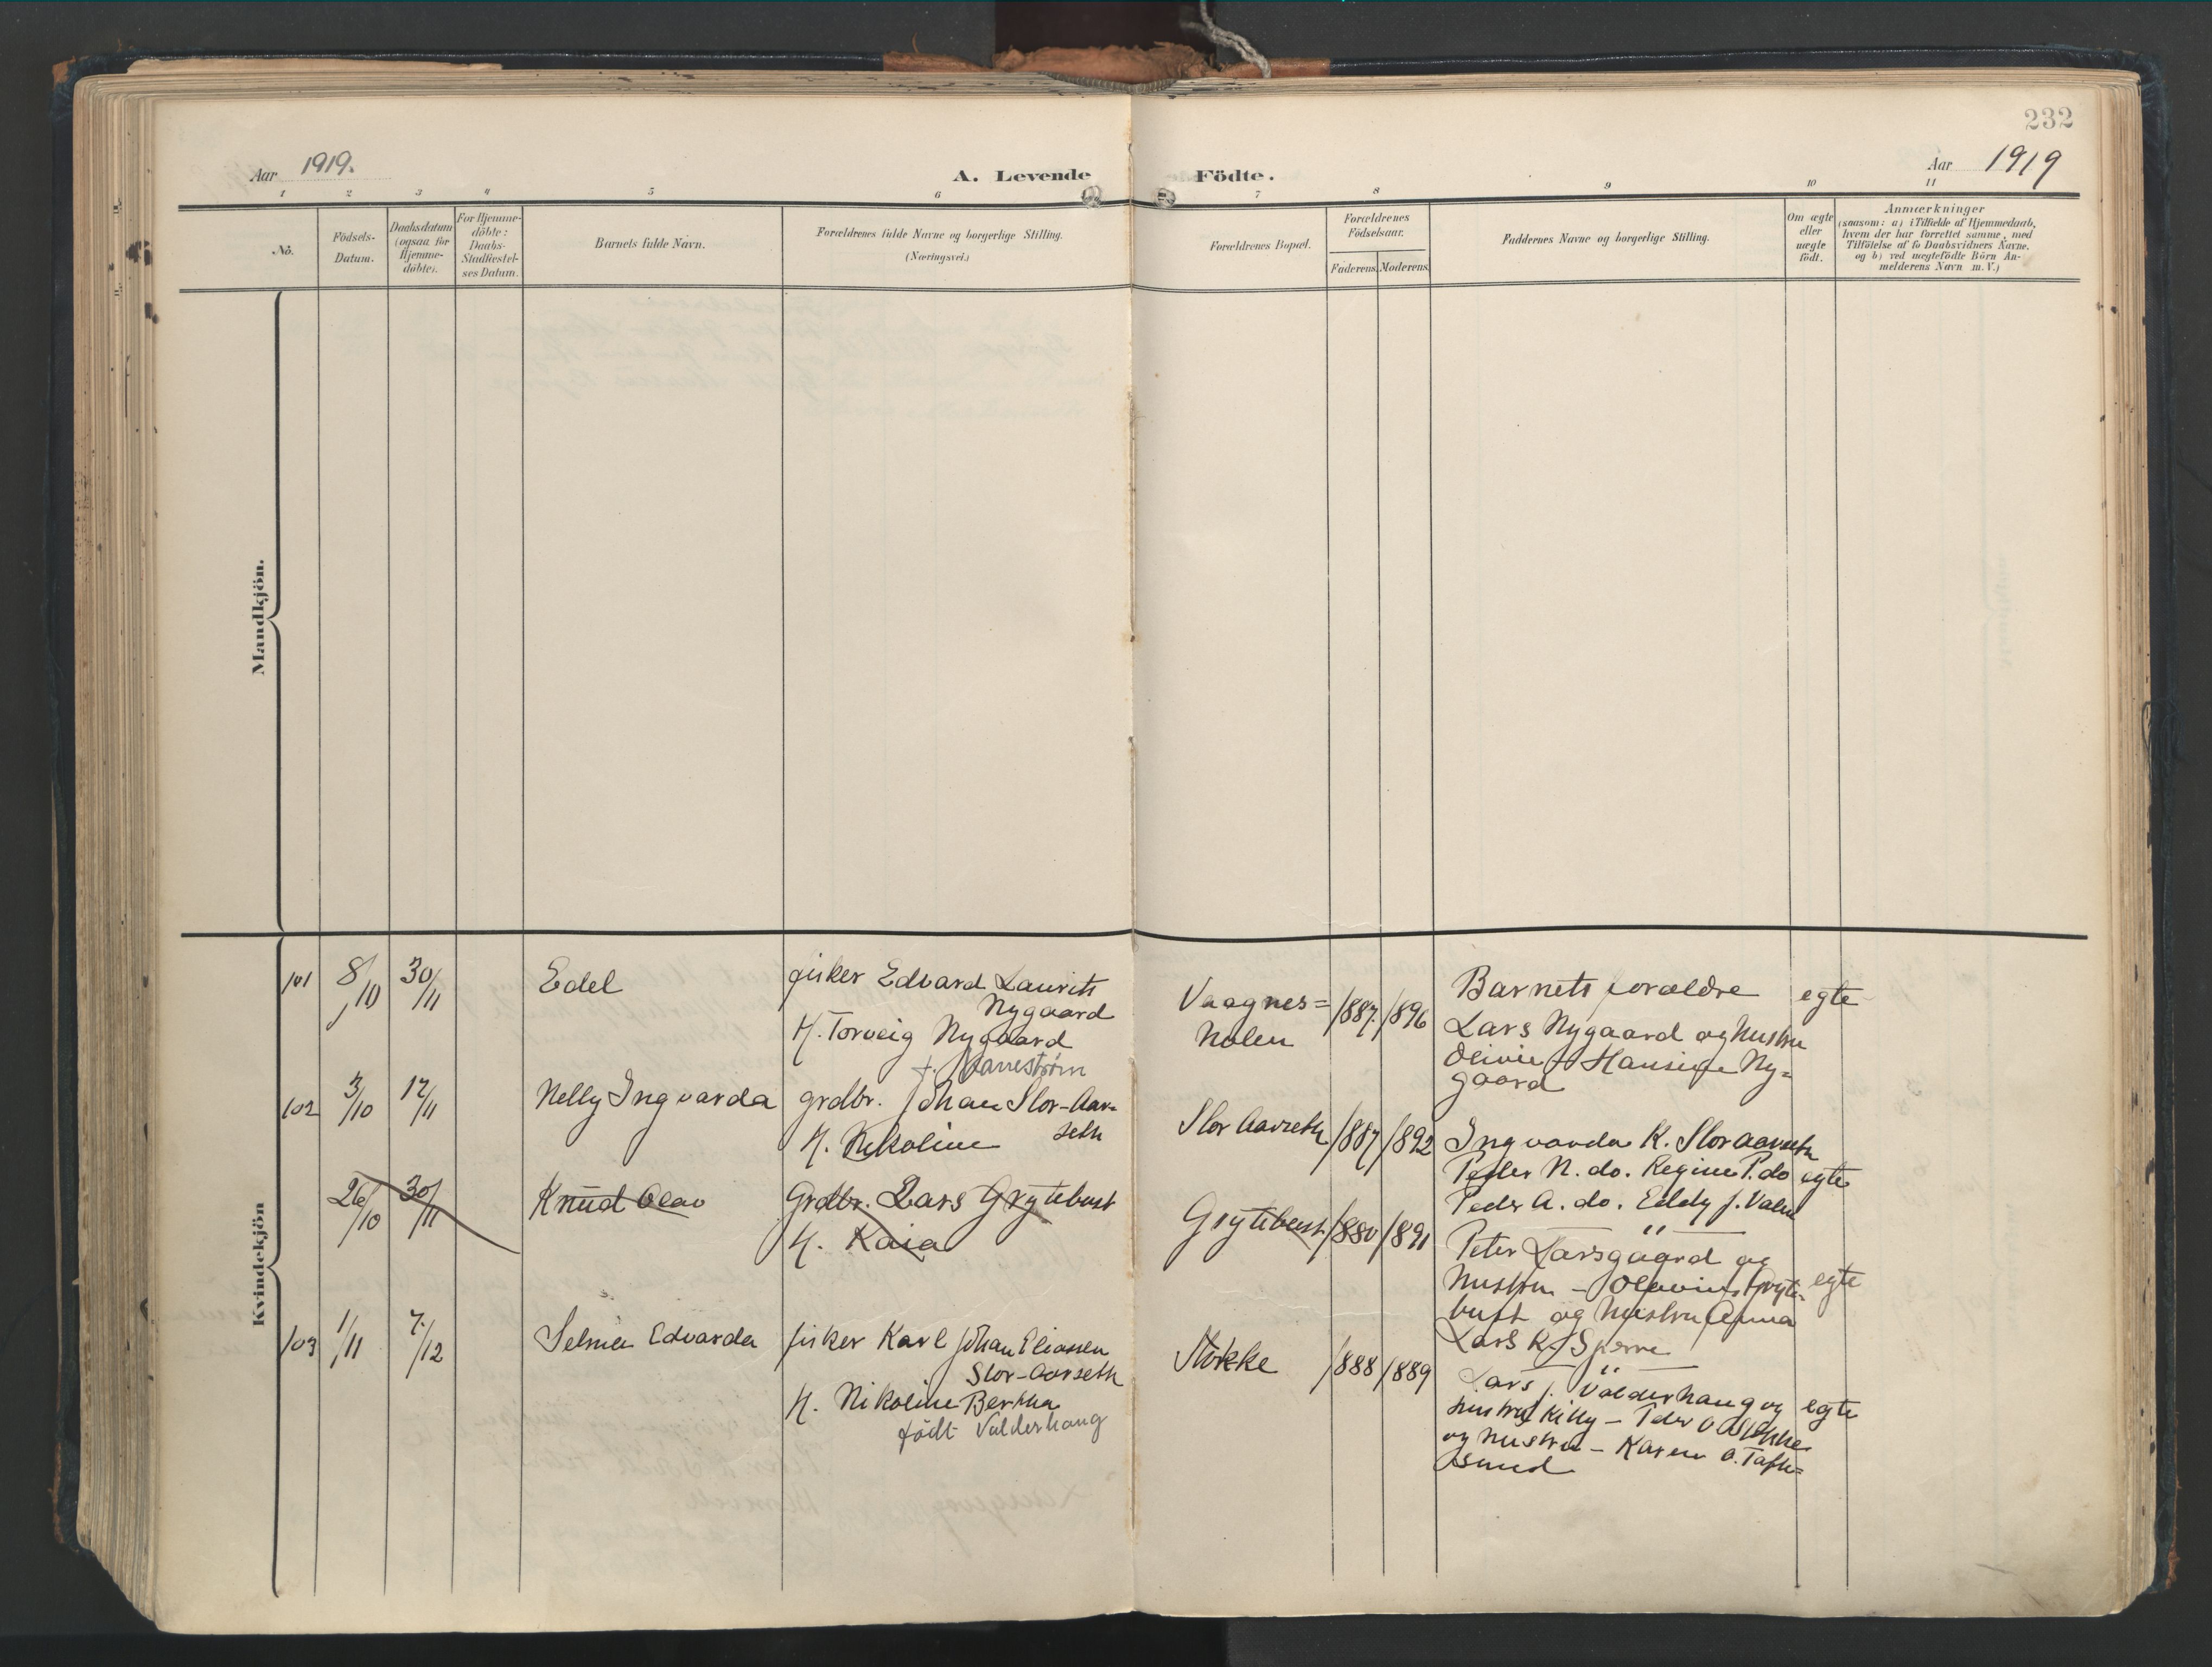 232
Aar 1919.
A. Levende Födte.
Aar 1919
1 2 3 4 5 6 7 8 9 10 11
No.
Födsels-
Datum.
Daabsdatum
(ogsaa for
Hjemme-
döbte).
For Hjemme-
döbte:
Daabs-
Stadfæstel-
ses Datum.
Barnets fulde Navn.
Forældrenes fulde Navne og borgerlige Stilling.
(Næringsvei.)
Forældrenes Bopæl.
Forældrenes
Födselsaar.
Faderens. Moderens.
Faddernes Navne og borgerlige Stilling.
Om ægte
eller
uægte
födt.
Anmærkninger
(saasom: a) i Tilfælde af Hjemmedaab,
hvem der har forrettet samme, med
Tilföielse af to Daabsvidners Navne.
og b) ved uægtefödte Börn An-
melderens Navn m. V.)
Mandkjön.
Kvindekjön
101 8/10 30/11 Edel
fisker Edvard Laurits
Nygaard
H. Torveig Nygaard
f. Harrestrøm
Vaagnes=
holen
1887. 1896
Barnets forældre
Lars Nygaard og hustru
Olivie Hansine Ny=
gaard
egte
102 3/10 17/11 Nelly Ingvarda
grdbr. Johan Stor-Aar-
seth
H. Nikoline
Stor Aarseth 1887 1892
Ingvarda K. Stor aarseth
Peder N. do. Regine P. do
Peder A. do. Eddy J.
egte
26/10 30/11 Knud Olav
Grdbr. Lars Grytebust
H. Kaia
Grytebust 1880 1891
"
Peter Larsgaard og
hustru - Olavius Gryte-
bust og hustru Anna
Lars K. Sperre
egte
103 1/11 7./12 Selma Edvarda
fisker Karl Johan Eliassen
Stor-Aarseth
H. Nikoline Bertha
födt Valderhaug
Stokke 1888 1889
"
Lars J. Valderhaug og
hustru Killy - Peder O Stokke
og hustru - Karen O. Taft=
sund
egte